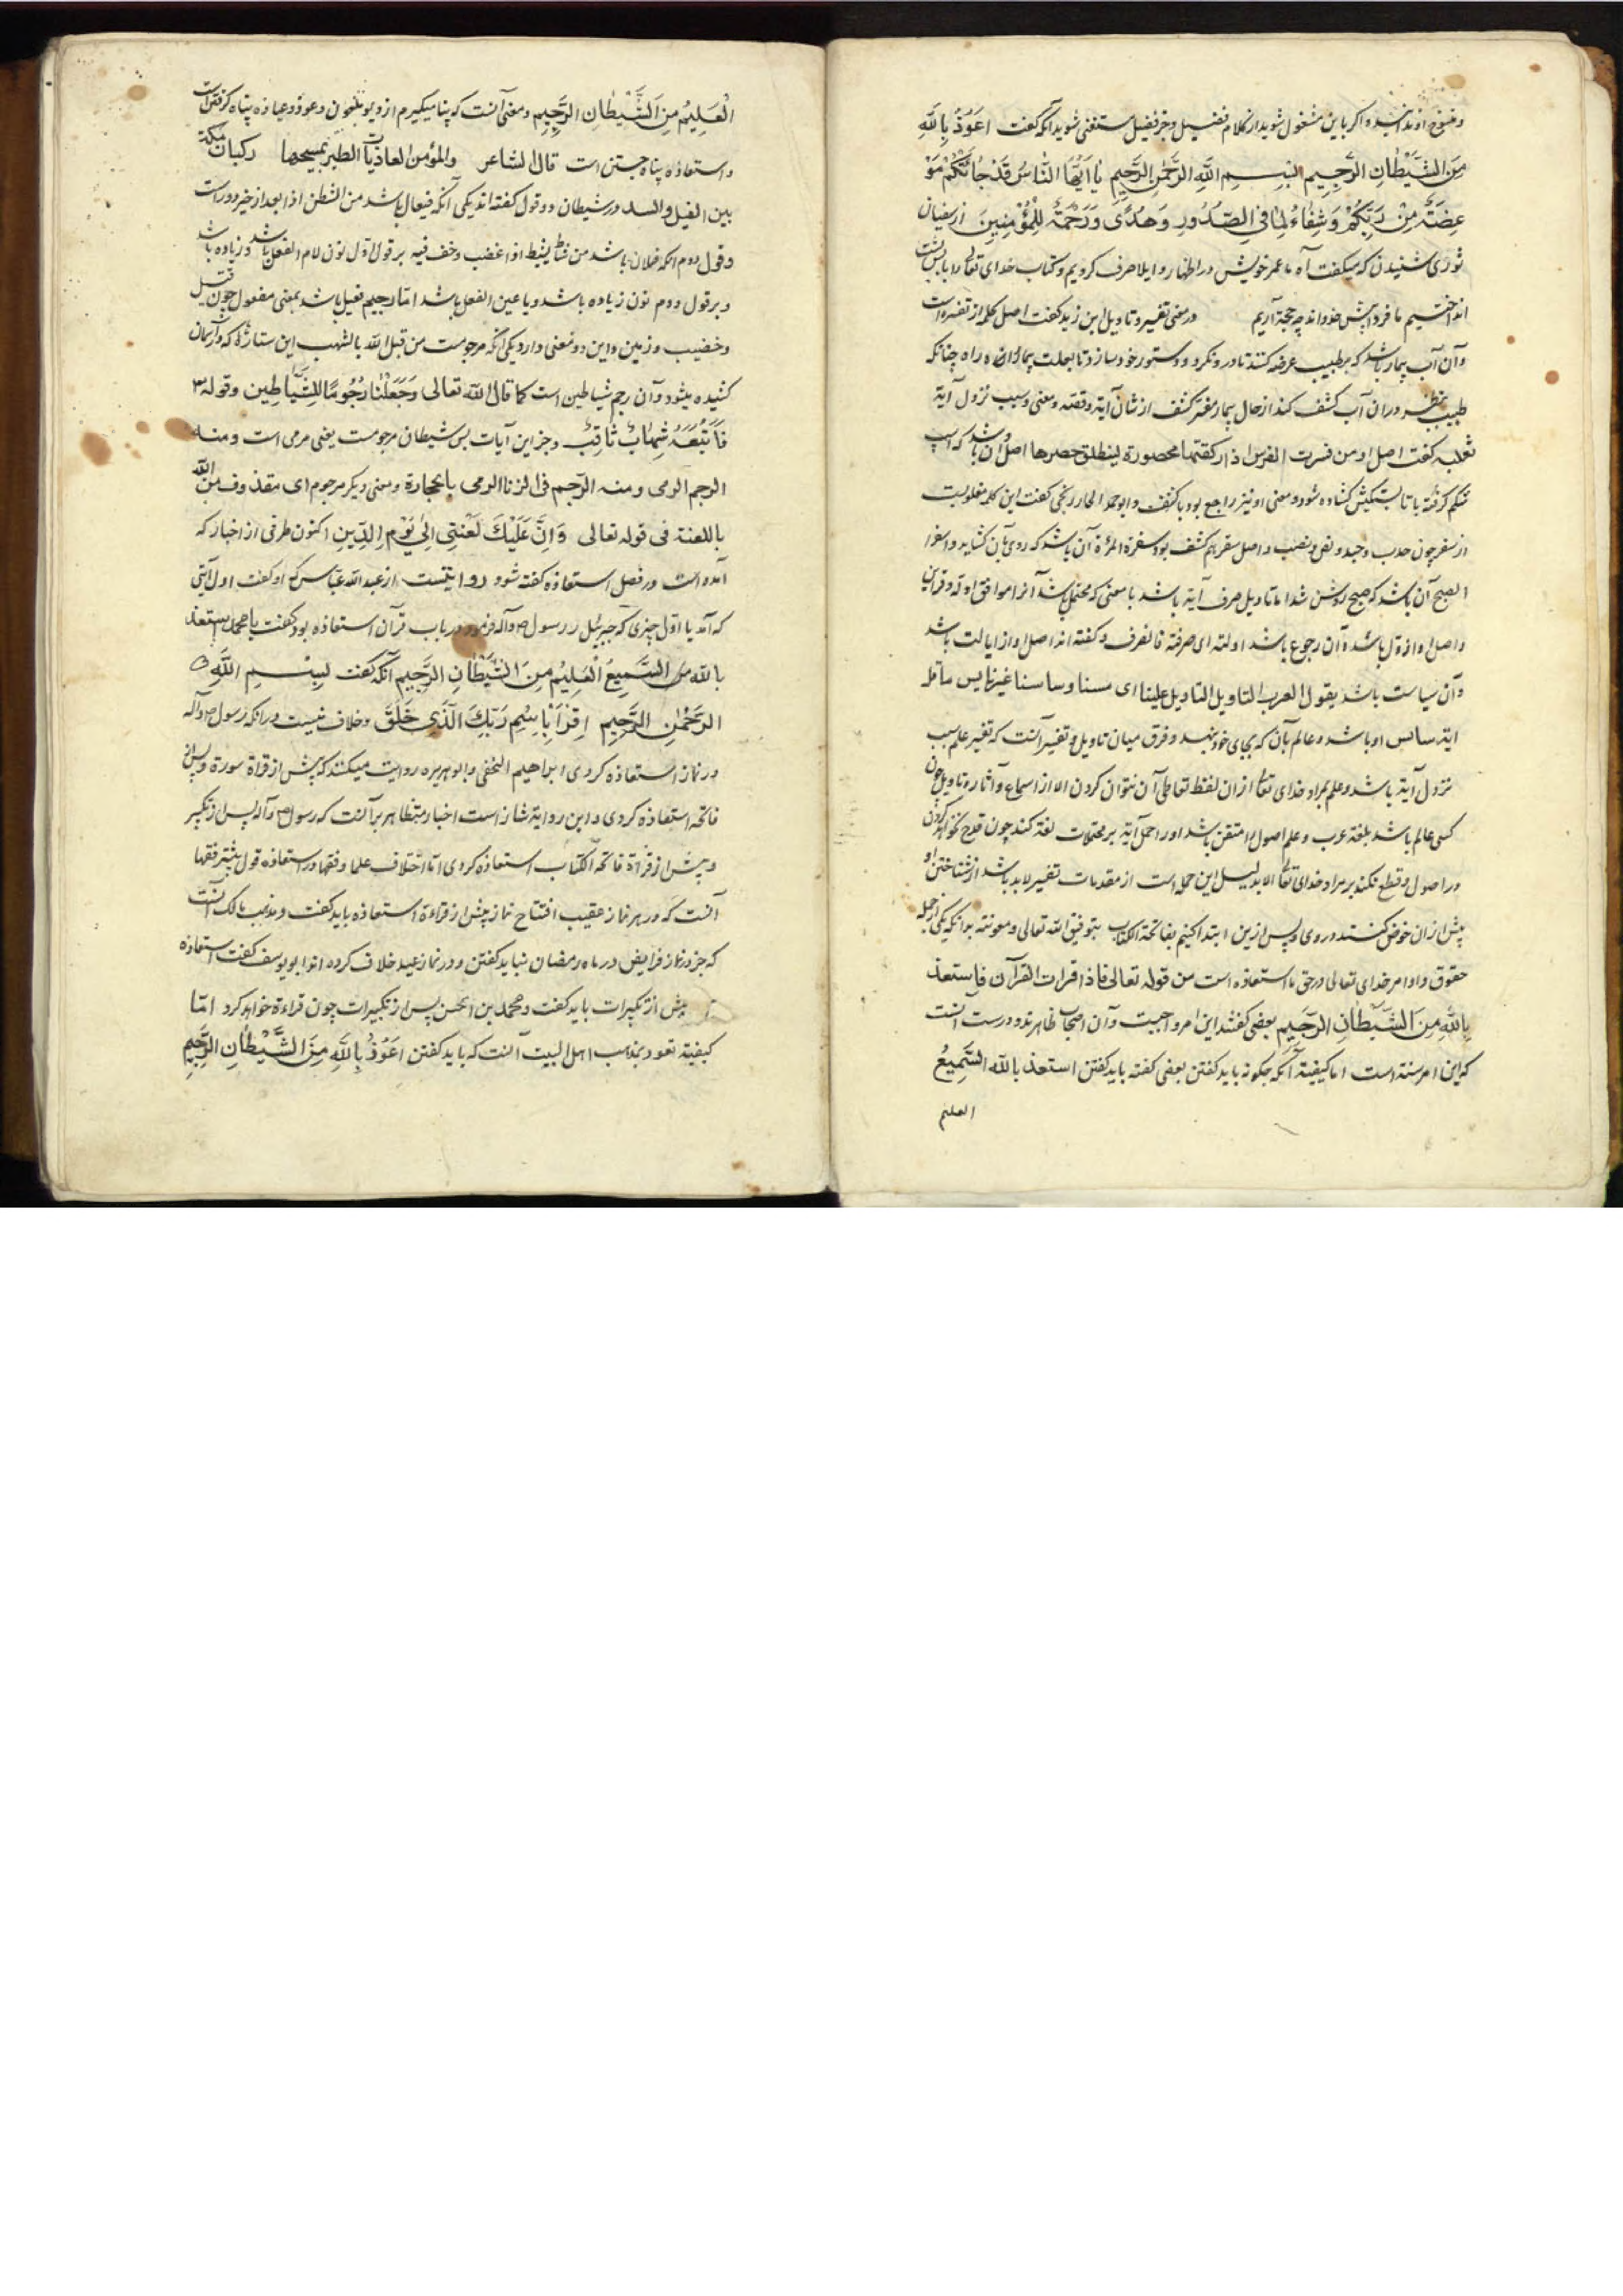 اگر باین مشغول شوید از کلام فضیل و جز فضیل مستغنی شوید آنکه گفت اعوذ بالله
مِنَ الشَّيْطَانِ الرَّجِيمِ بِسْمِ اللهِ الرَّحْمٰنِ الرَّحِيمِ يٰا اَيُّهَا النّٰاسُ قَدْ جٰاءَتْكُمْ مَوْ
عِظَةٌ مِنْ رَبِّكُمْ وَشِفٰاءٌ لِمٰا فِي الصُّدُورِ وَهُدًى وَرَحْمَةٌ لِلْمُؤْمِنِينَ از سفیان
ثوری شنیدن که میگفت آه ما عمر خویش در اظهار و ایلا صرف کردیم و کتاب خدای تعالی را با پس پشت
انداختیم ما فردا پیش خداوند چه حجة آریم در معنی تفسیر و تاویل ابن زید گفت اصل کلمه از تفسره است
و آن آب بیمار باشد که بر طبیب عرضه کنند تا در و نگرد و دستور خود سازد تا بعلت بیمار راه چنانکه
طبیب بنظر در آن آب کشف کند از حال بیمار مفسر کشف از شان آیة و قصه و معنی و سبب نزول آیة
ثعلب گفت اصل او من فسرت الفرس اذا رکضتها محصورة لینطلق حصرها اصل آن باشد که اسپ
شکم گرفته با تابستکیش گشاده شود و معنی او نیز راجع بود با کشف و ابو حمد الحارزنجی گفت این کلمه مقلوبست
از سفر چون جذب و جبذ و اصل سفر هم کشف بود سفرة المرأة آن باشد که روی باز کشاید و اسفر
الصبح آن باشد که صبح روشن شد اما تاویل صرف آیة باشد با معنی که محتمل باشد آنرا موافق ادله و قراین
و اصل او از اول باشد و آن رجوع باشد اولته ای صرفته فانصرف و گفته اند اصل او از ایالت باشد
و آن سیاست باشد یقول العرب
ایة سائس او باشد و عالم بآن که بجای خود نهد و فرق میان تاویل و تفسیر آنست که تفسیر علم سبب
نزول آیة باشد و علم بمراد خدای تعالی از آن لفظ تعاطی آن نتوان کردن الا از سماع و آثار و تاویل چون
کسی عالم باشد بلغة عرب و علم اصول را متقن باشد او را حمل آیة بر محتملات لغة کند چون قدح نخواهد کردن
در اصول و قطع نکند بر مراد خدای تعالی الا بدلیل این جمله است از مقدمات تفسیر لابد باشد از شناختن او
پیش از آن خوض کنند در وی و پس ازین ابتدا کنیم بفاتحة الکتاب بتوفیق الله تعالی و معونته بدانکه یکی از جمله
حقوق و اوامر خدای تعالی در حق ما استعاذه است من قوله تعالی فاذا قرات القرآن فاستعذ
بِاللهِ مِنَ الشَّيْطٰانِ الرَّجِيمِ بعضی گفتند این امر واجبست و آن اصحاب ظاهرند و درست آنست
که این امر سنة است اما کیفیة آنکه چکونه باید گفتن بعضی گفته باید گفتن استعذ بالله السَّمِيعُ
العلیم
الْعَلِيمُ مِنَ الشَّيْطٰانِ الرَّجِيمِ و معنی آنست که پنا میگیرم از دیو ملعون و عوذ و عیاذه پناه گرفتن است
و استعاذه پناه جستن است قال الشاعر والمؤمن العاذیات الطیر یمسحها رکبان مکة
بین الفیل والسد در شیطان دو قول گفته اند یکی آنکه فیعال باشد من الشطن اذا بعد از خیر دور است
و قول دوم آنکه فعلان باشد من شاط یشیط اذا غضب و خف فیه بر قول اول نون لام الفعل باشد و زیاده باشد
و بر قول دوم نون زیاده باشد و یا عین الفعل باشد اما رجیم فعیل باشد بمعنی مفعول چون قتیل
و خضیب و زمین و این دو معنی دارد یکی آنکه مرجومست من قبل الله بالشهب این ستارها که در آسمان
کشیده میشود و آن رجم شیاطین است کما قال الله تعالی وَجَعَلْنٰاهٰا رُجُومًا لِلشَّيٰاطِينِ وقوله
فَاَتْبَعَهُ شِهٰابٌ ثٰاقِبٌ و جز این آیات پس شیطان مرجومست یعنی مرمی است و منه
الرجم الرمی ومنه الرجم فی الزنا الرمی بالحجارة و معنی دیگر مرجوم ای مقذوف من الله
باللعنة فی قوله تعالی وَاِنَّ عَلَيْكَ لَعْنَتِي اِلٰى يَوْمِ الدِّينِ اکنون طرفی از اخبار که
آمده است در فصل استعاذه گفته شود روایتست از عبد الله عباس که او گفت اول آیتی
که آمد یا اول چیزی که جبرئیل رسول ص و آله فرمود در باب قرآن استعاذه بود گفت یا محمد استعذ
بالله السَّمِيعُ الْعَلِيمُ مِنَ الشَّيْطٰانِ الرَّجِيمِ آنکه گفت بِسْمِ اللهِ
الرَّحْمٰنِ الرَّحِيمِ اِقْرَاْ بِاسْمِ رَبِّكَ الَّذِي خَلَقَ و خلاف نیست در آنکه رسول ص و آله
در نماز استعاذه کردی ابراهیم النخعی و ابو هریره روایت میکنند که پیش از قراة سورة و پس از
فاتحه استعاذه کردی و این روایة شاذ است اخبار متظاهر بر آنست که رسول ص و آله پس از تکبیر
و پیش از قراة فاتحة الکتاب استعاذه کردی اما اختلاف علما و فقها در استعاذه قول بیشتر فقها
آنست که در هر نماز عقیب افتتاح نماز پیش از قراءة استعاذه باید گفت و مذهب مالک آنست
که جز در نماز فرایض در ماه رمضان نباید گفتن و در نماز عید خلاف کرده اند ابو یوسف گفت استعاذه
پیش از تکبیرات باید گفت و محمد بن الحسن پس از تکبیرات چون قراءة خواهد کرد امّا
کیفیة تعوذ بمذهب اهل البیت آنست که باید گفتن اَعُوذُ بِاللهِ مِنَ الشَّيْطٰانِ الرَّجِيمِ